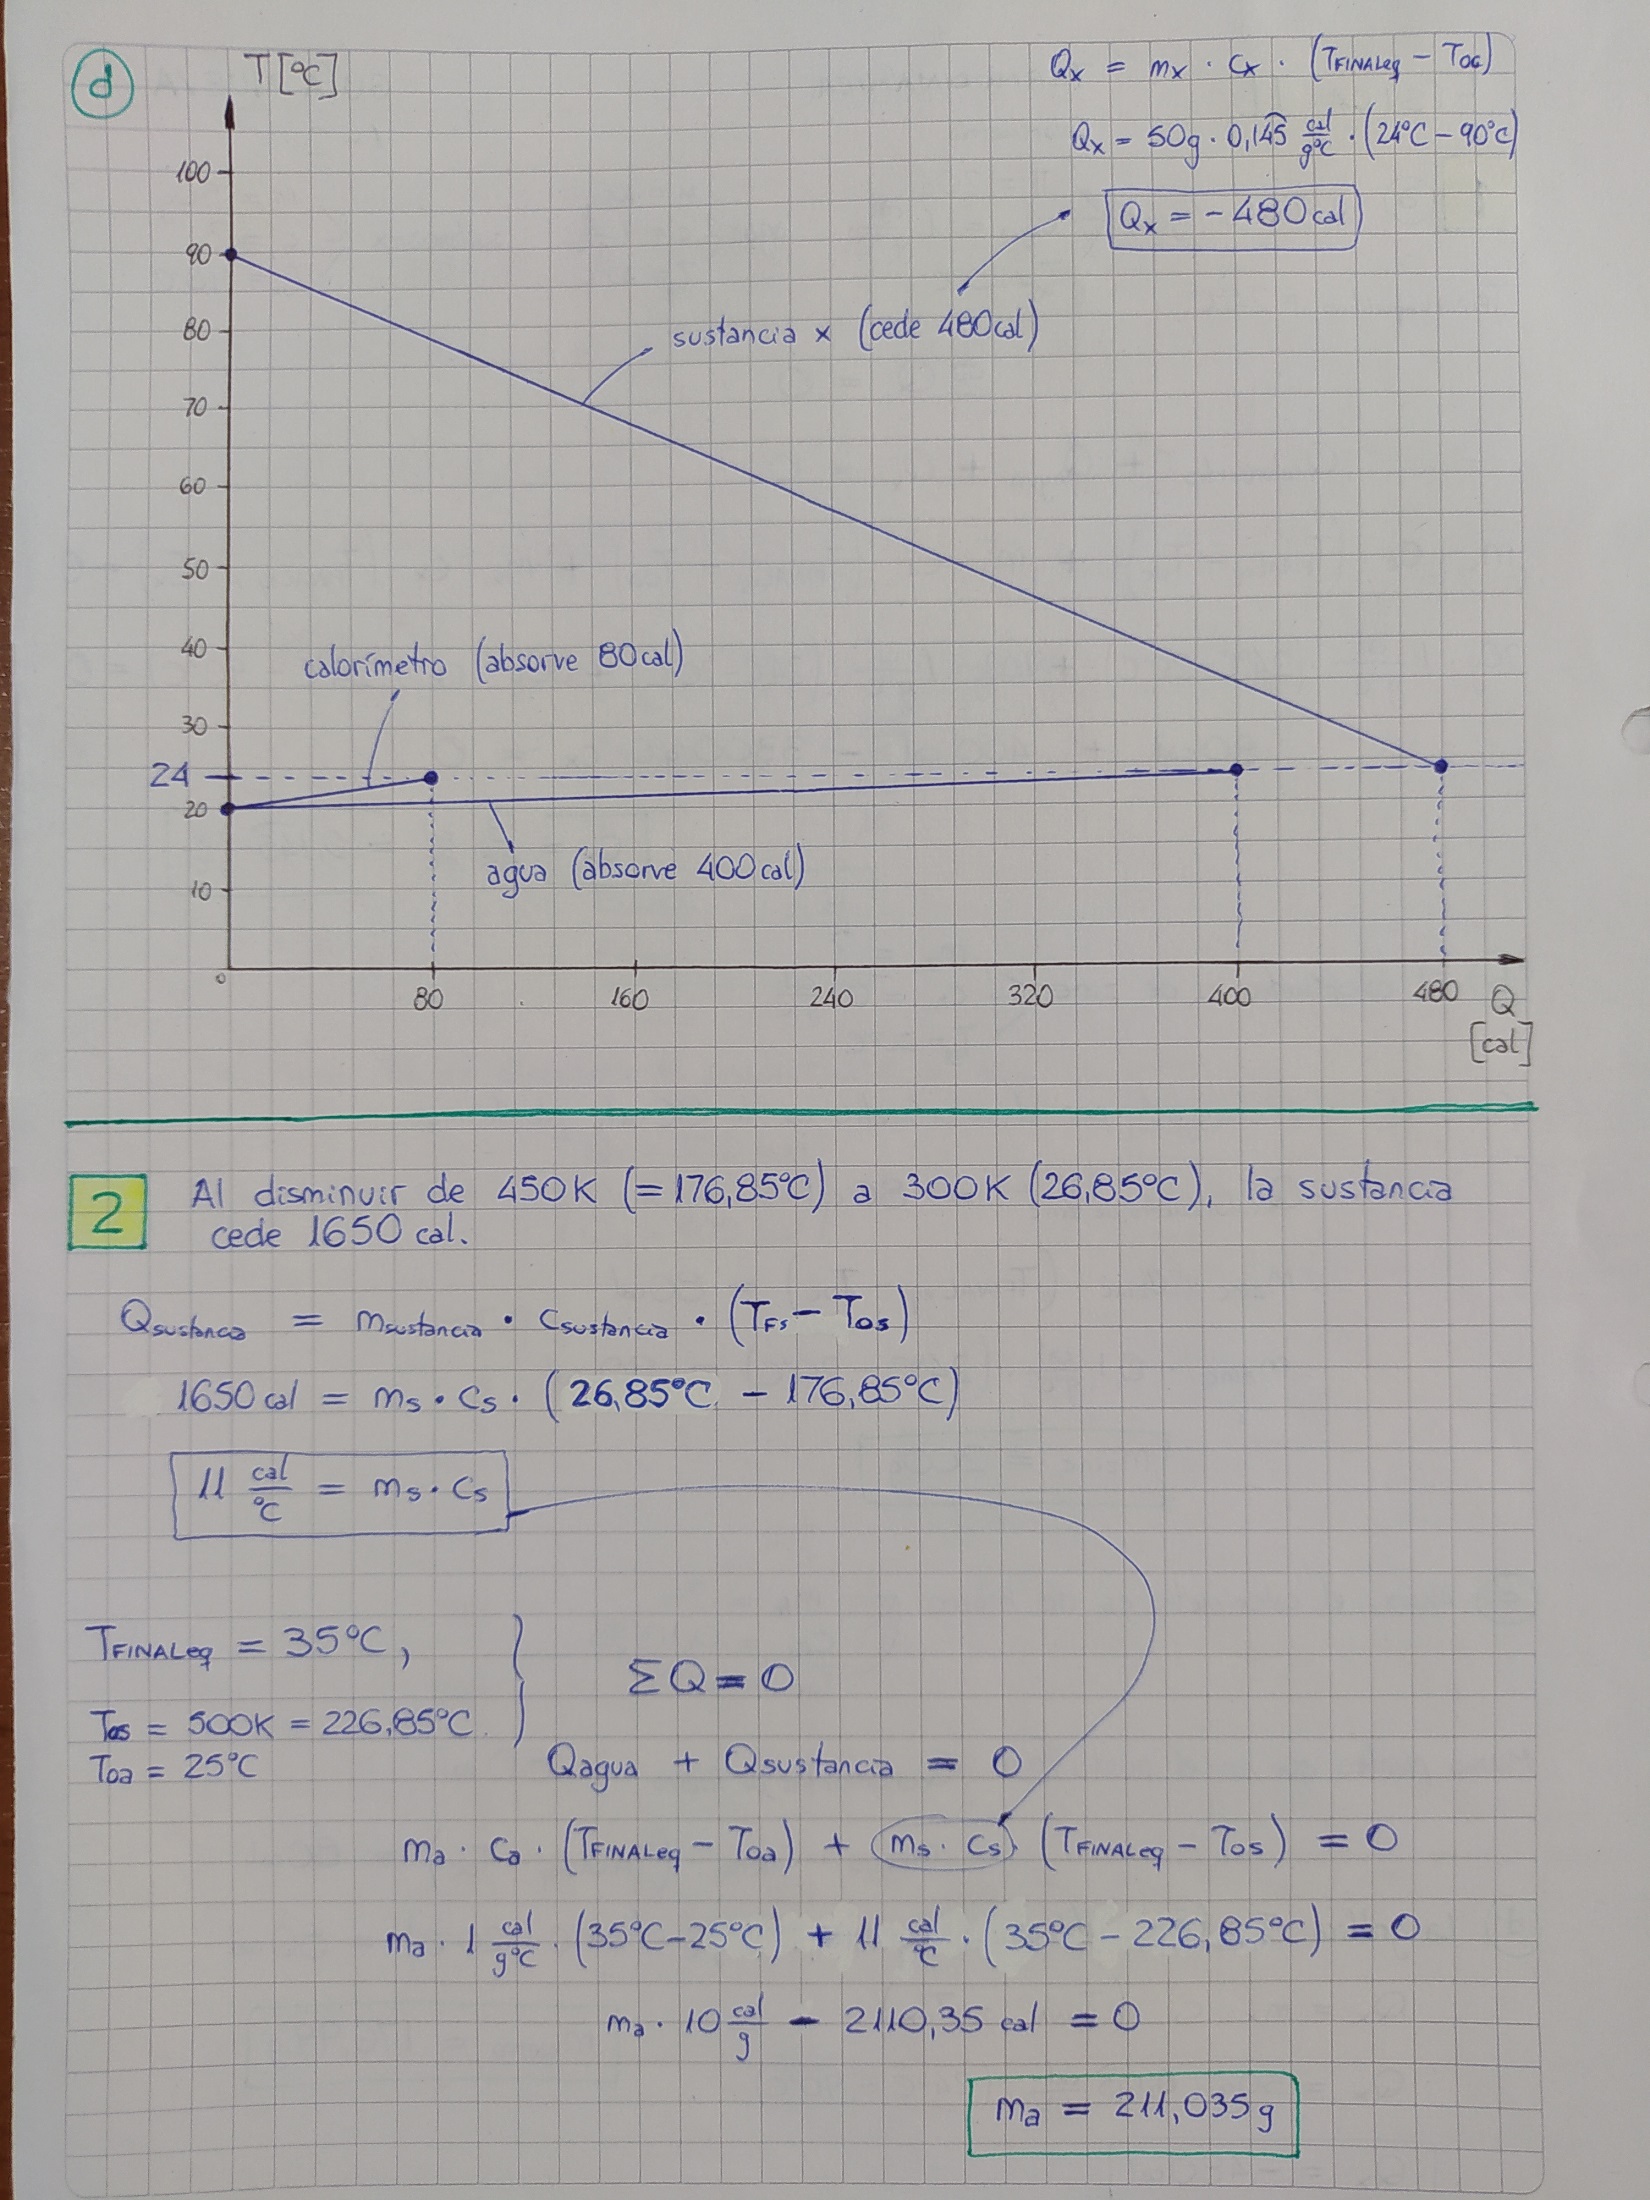 d
T [°C]
Qx = mx · cx · (TFINALeq – Toc)
Qx = 50g · 0,14̂5̂ cal/g°C · (24°C – 90°C)
Qx = – 480cal
100
90
80
sustancia x (cede 480cal)
70
60
50
40
calorímetro (absorve 80cal)
30
24
20
agua (absorve 400cal)
10
0
80 160 240 320 400 480 Q
[cal]
2 Al disminuir de 450K (=176,85°C) a 300K (26,85°C), la sustancia
cede 1650 cal.
Qsustancia = msustancia · csustancia · (TFs – Tos)
1650 cal = ms · cs · (26,85°C – 176,85°C)
11 cal/°C = ms · cs
TFINALeq = 35°C,
ΣQ = 0
Tos = 500K = 226,85°C
Toa = 25°C
Qagua + Qsustancia = 0
ma · ca · (TFINALeq – Toa) + ms · cs · (TFINALeq – Tos) = 0
ma · 1 cal/g°C · (35°C–25°C) + 11 cal/°C · (35°C – 226,85°C) = 0
ma · 10 cal/g – 2110,35 cal = 0
ma = 211,035g